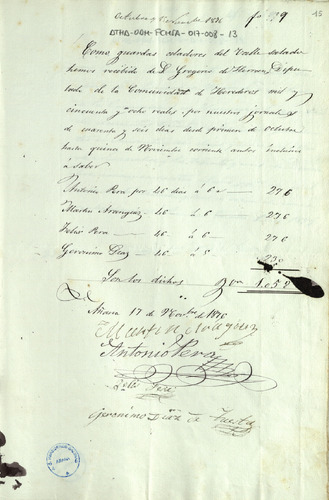 Octubre y Noviembre 1876 fo 129 15
ATHA-DAH-FCMSA-017-003-13
Como guardas celadores del Valle salado
hemos recibido de D. Gregorio de Herran Dipu-
tado de la Comunidad de Herederos mil y
cincuenta y ocho reales por nuestros jornales
de cuarenta y seis dias desde primero de octubre
hasta quince de Noviembre corriente ambos inclusive
á saber
Antonio Pera por 46 dias á 6 276
Martin Aranguiz 46 á 6 276
Felix Pera 46 á 6 276
Geronimo Diaz 46 á 5 230
Son los dichos Rvn 1.058
Añana 17 de Novbre de 1876
Martin Aranguiz
Antonio Pera
Felix Pera
Geronimo Diaz de Tuesta